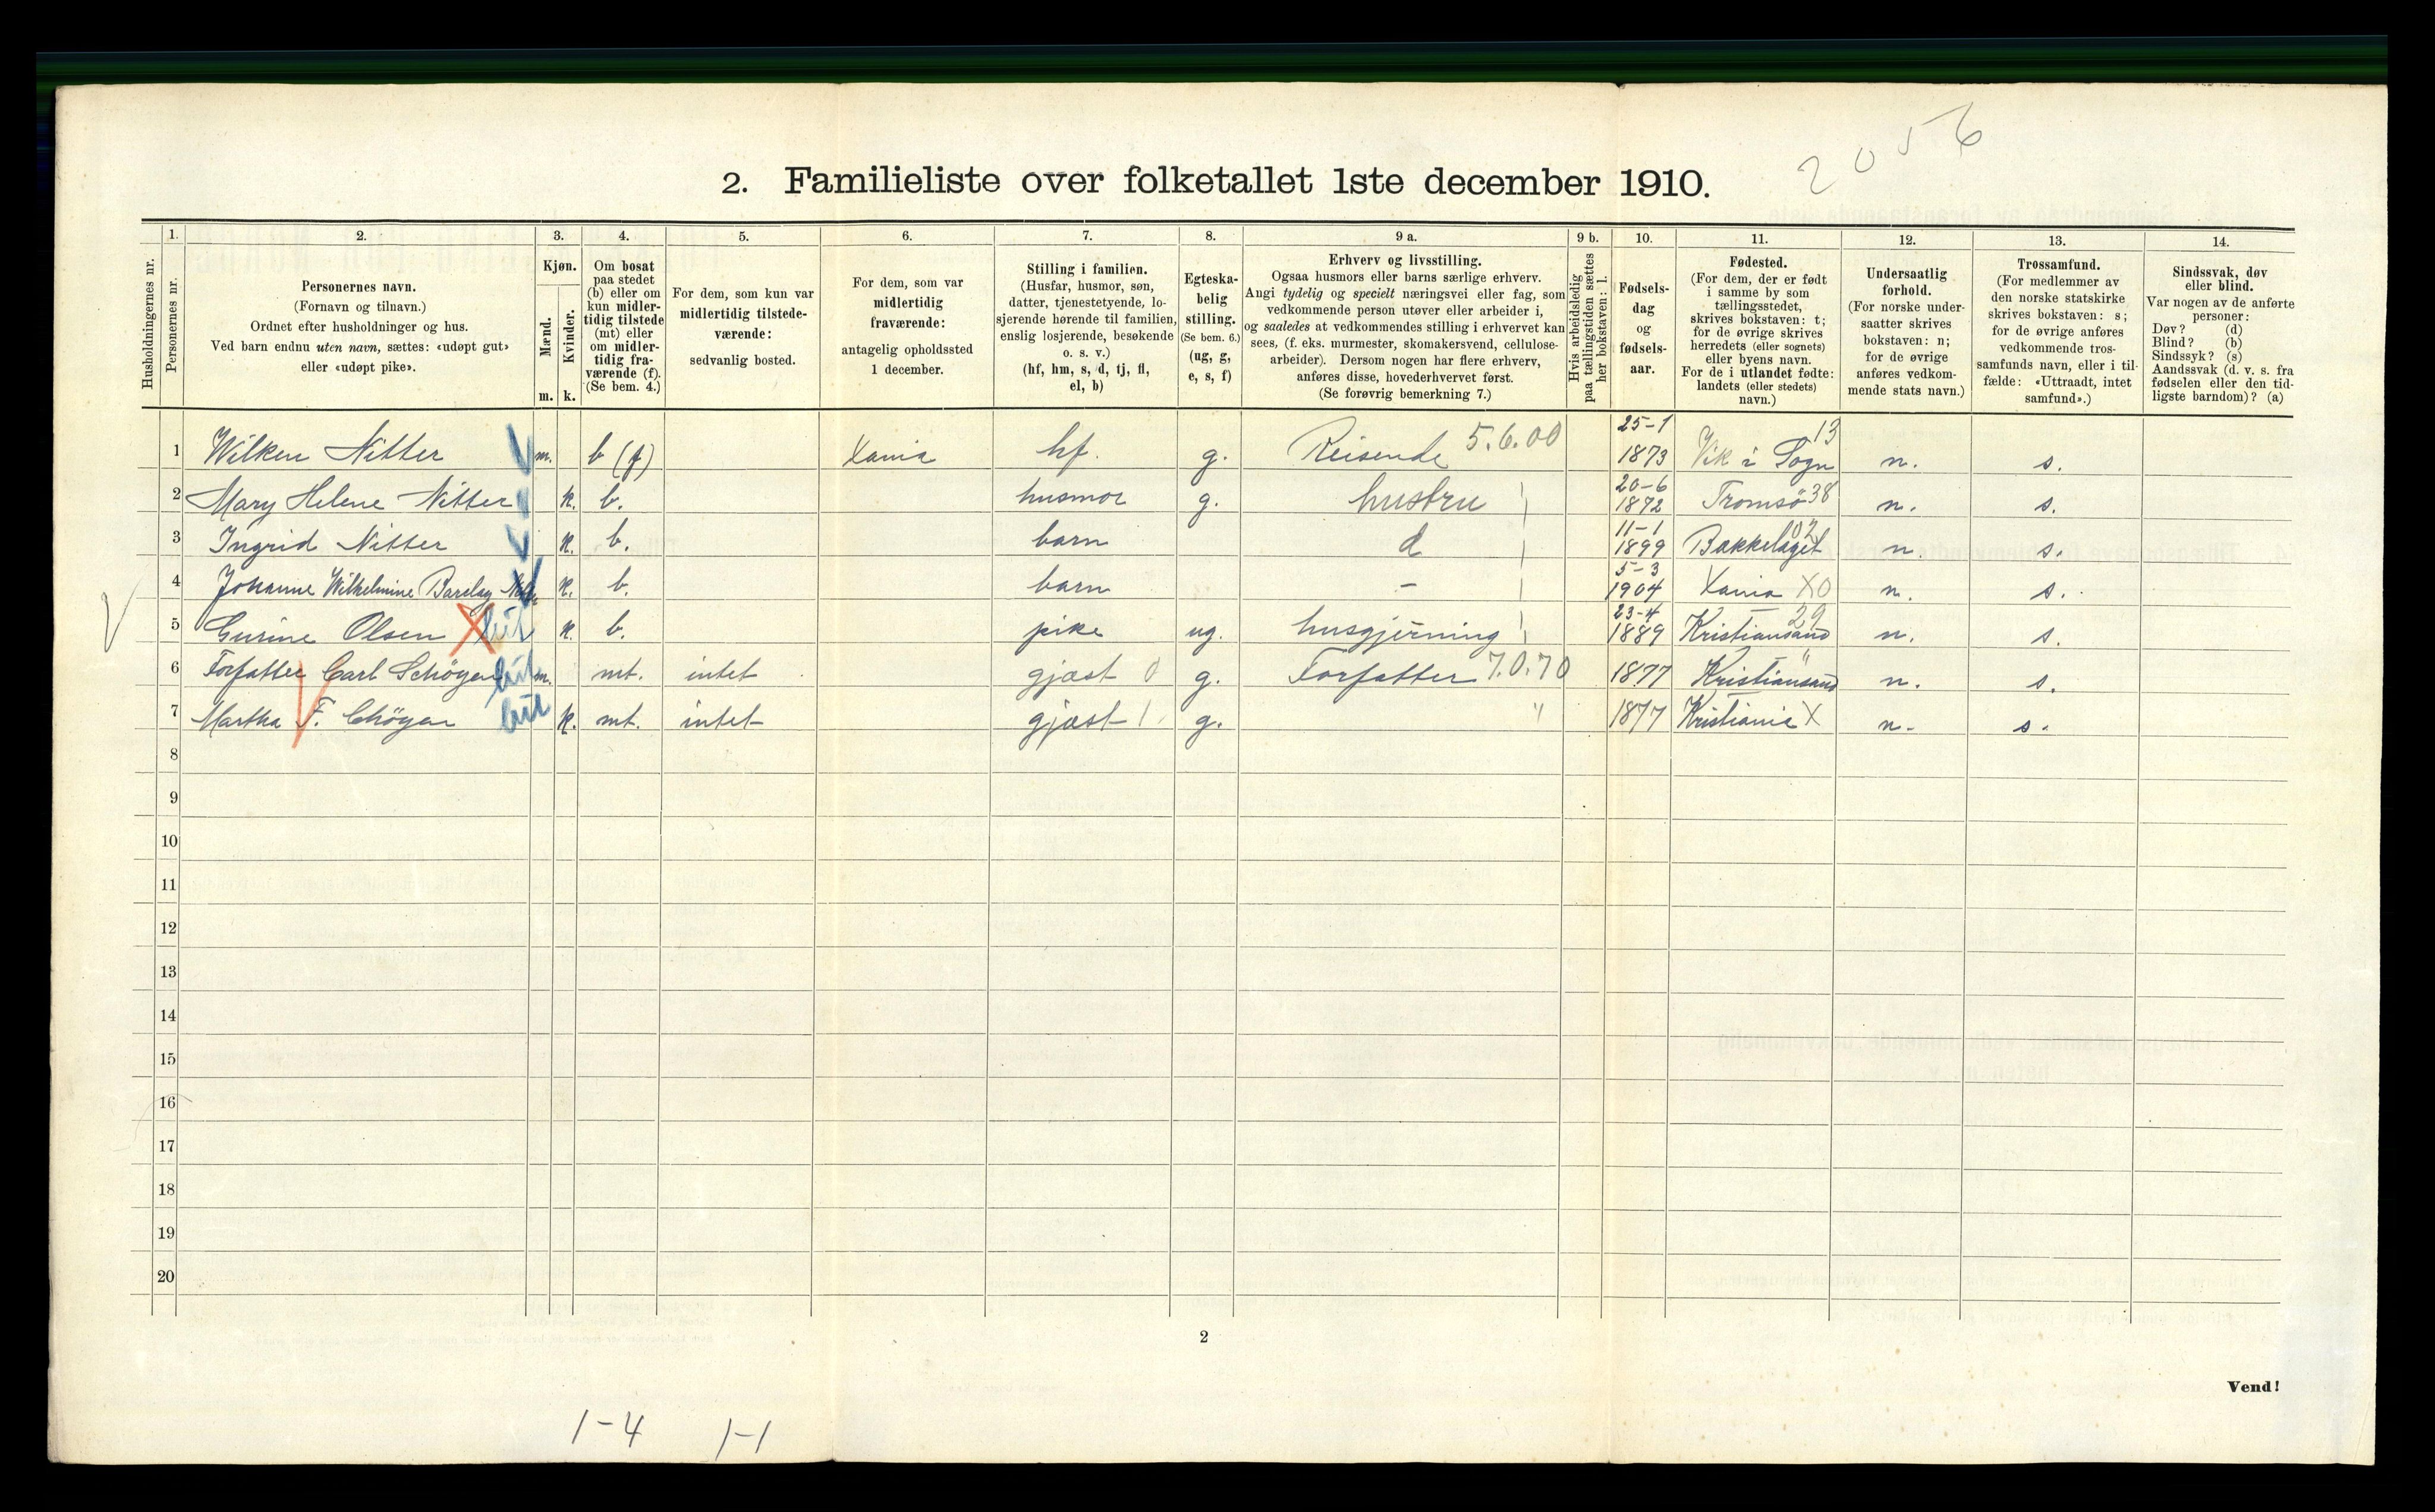 2056
2. Familieliste over folketallet 1ste december 1910.
Husholdningernes nr.
1. Personernes nr.
2. Personernes navn. (Fornavn og tilnavn.) Ordnet efter husholdninger og hus. Ved barn endnu uten navn, sættes: «udøpt gut» eller «udøpt pike».
3. Kjøn. Mænd. m. Kvinder. k.
4. Om bosat paa stedet (b) eller om kun midlertidig tilstede (mt) eller om midlertidig fraværende (f). (Se bem. 4.)
5. For dem, som kun var midlertidig tilstedeværende: sedvanlig bosted.
6. For dem, som var midlertidig fraværende: antagelig opholdssted 1 december.
7. Stilling i familien. (Husfar, husmor, søn, datter, tjenestetyende, losjerende hørende til familien, enslig losjerende, besøkende o. s. v.) (hf, hm, s, d, tj, fl, el, b)
8. Egteskabelig stilling. (Se bem. 6.) (ug, g, e, s, f)
9 a. Erhverv og livsstilling. Ogsaa husmors eller barns særlige erhverv. Angi tydelig og specielt næringsvei eller fag, som vedkommende person utøver eller arbeider i, og saaledes at vedkommendes stilling i erhvervet kan sees, (f. eks. murmester, skomakersvend, cellulosearbeider). Dersom nogen har flere erhverv, anføres disse, hovederhvervet først. (Se forøvrig bemerkning 7.)
9 b. Hvis arbeidsledig paa tællingstiden sættes her bokstaven: l.
10. Fødselsdag og fødselsaar.
11. Fødested. (For dem, der er født i samme by som tællingsstedet, skrives bokstaven: t; for de øvrige skrives herredets (eller sognets) eller byens navn. For de i utlandet fødte: landets (eller stedets) navn.)
12. Undersaatlig forhold. (For norske undersaatter skrives bokstaven: n; for de øvrige anføres vedkommende stats navn.)
13. Trossamfund. (For medlemmer av den norske statskirke skrives bokstaven: s; for de øvrige anføres vedkommende trossamfunds navn, eller i tilfælde: «Uttraadt, intet samfund».)
14. Sindssvak, døv eller blind. Var nogen av de anførte personer: Døv? (d) Blind? (b) Sindssyk? (s) Aandssvak (d. v. s. fra fødselen eller den tidligste barndom)? (a)
1 Wilken Nitter m. b (f) Xania hf. g. Reisende 5.6.00 25-1 1873 Vik i Sogn 13 n. s.
2 Mary Helene Nitter k. b. husmor g. hustru 20-6 1872 Tromsö 38 n. s.
3 Ingrid Nitter k. b. barn d 11-1 1899 Bækkelaget 02 n. s.
4 Johanne Wilhelmine Barclay k. b. barn - 5-3 1904 Xania X0 n. s.
5 Gurine Olsen X k. b. pike ug. husgjerning 23-4 1889 Kristiansand 29 n. s.
6 Forfatter Carl Schöyen m. mt. intet gjæst 0 g. Forfatter 7.0.70 1877 Kristiansand " n. s.
7 Martha F. Chöyen k. mt. intet gjæst 1 g. " 1877 Kristiania X n. s.
8
9
10
11
12
13
14
15
16
17
18
19
20
2
Vend!
1-4 1-1